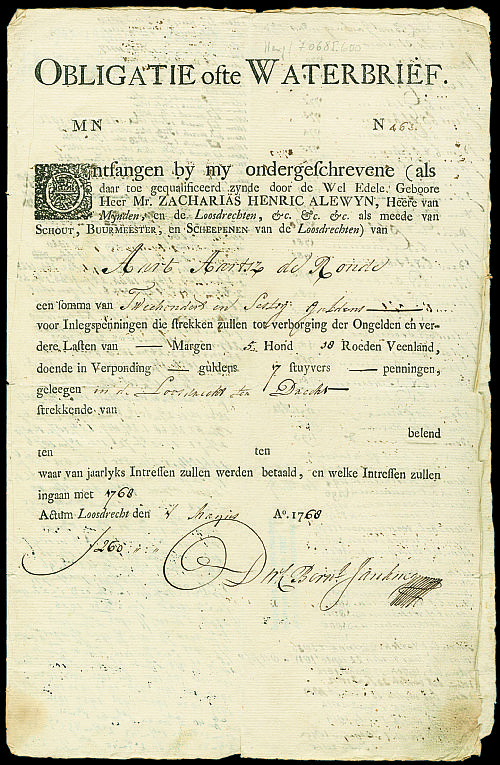 70685.600
OBLIGATIE ofte WATERBRIEF.
M N N 263.
Ontfangen by my ondergeschrevene (als
daar toe gequalificeerd zynde door de Wel Edele Geboore
Heer Mr. ZACHARIAS HENRIC ALEWYN, Heere van
Mynden, en de Loosdrechten, &c. &c. &c. als meede van
SCHOUT, BUURMEESTER, en SCHEEPENEN van de Loosdrechten) van
Aart Aartsz de Ronde
een somma van Tweehondert en Sestig guldens
voor Inlegspenningen die strekken zullen tot verborging der Ongelden en ver-
dere Lasten van — Margen 5 Hond 38 Roeden Veenland,
doende in Verponding — guldens 7 stuyvers — penningen,
geleegen in de Loosdrecht ten
strekkende van
belend
ten ten
waar van jaarlyks Intressen zullen werden betaald, en welke Intressen zullen
ingaan met 1768
Actum Loosdrecht den Mayus Ao. 1768
f 260